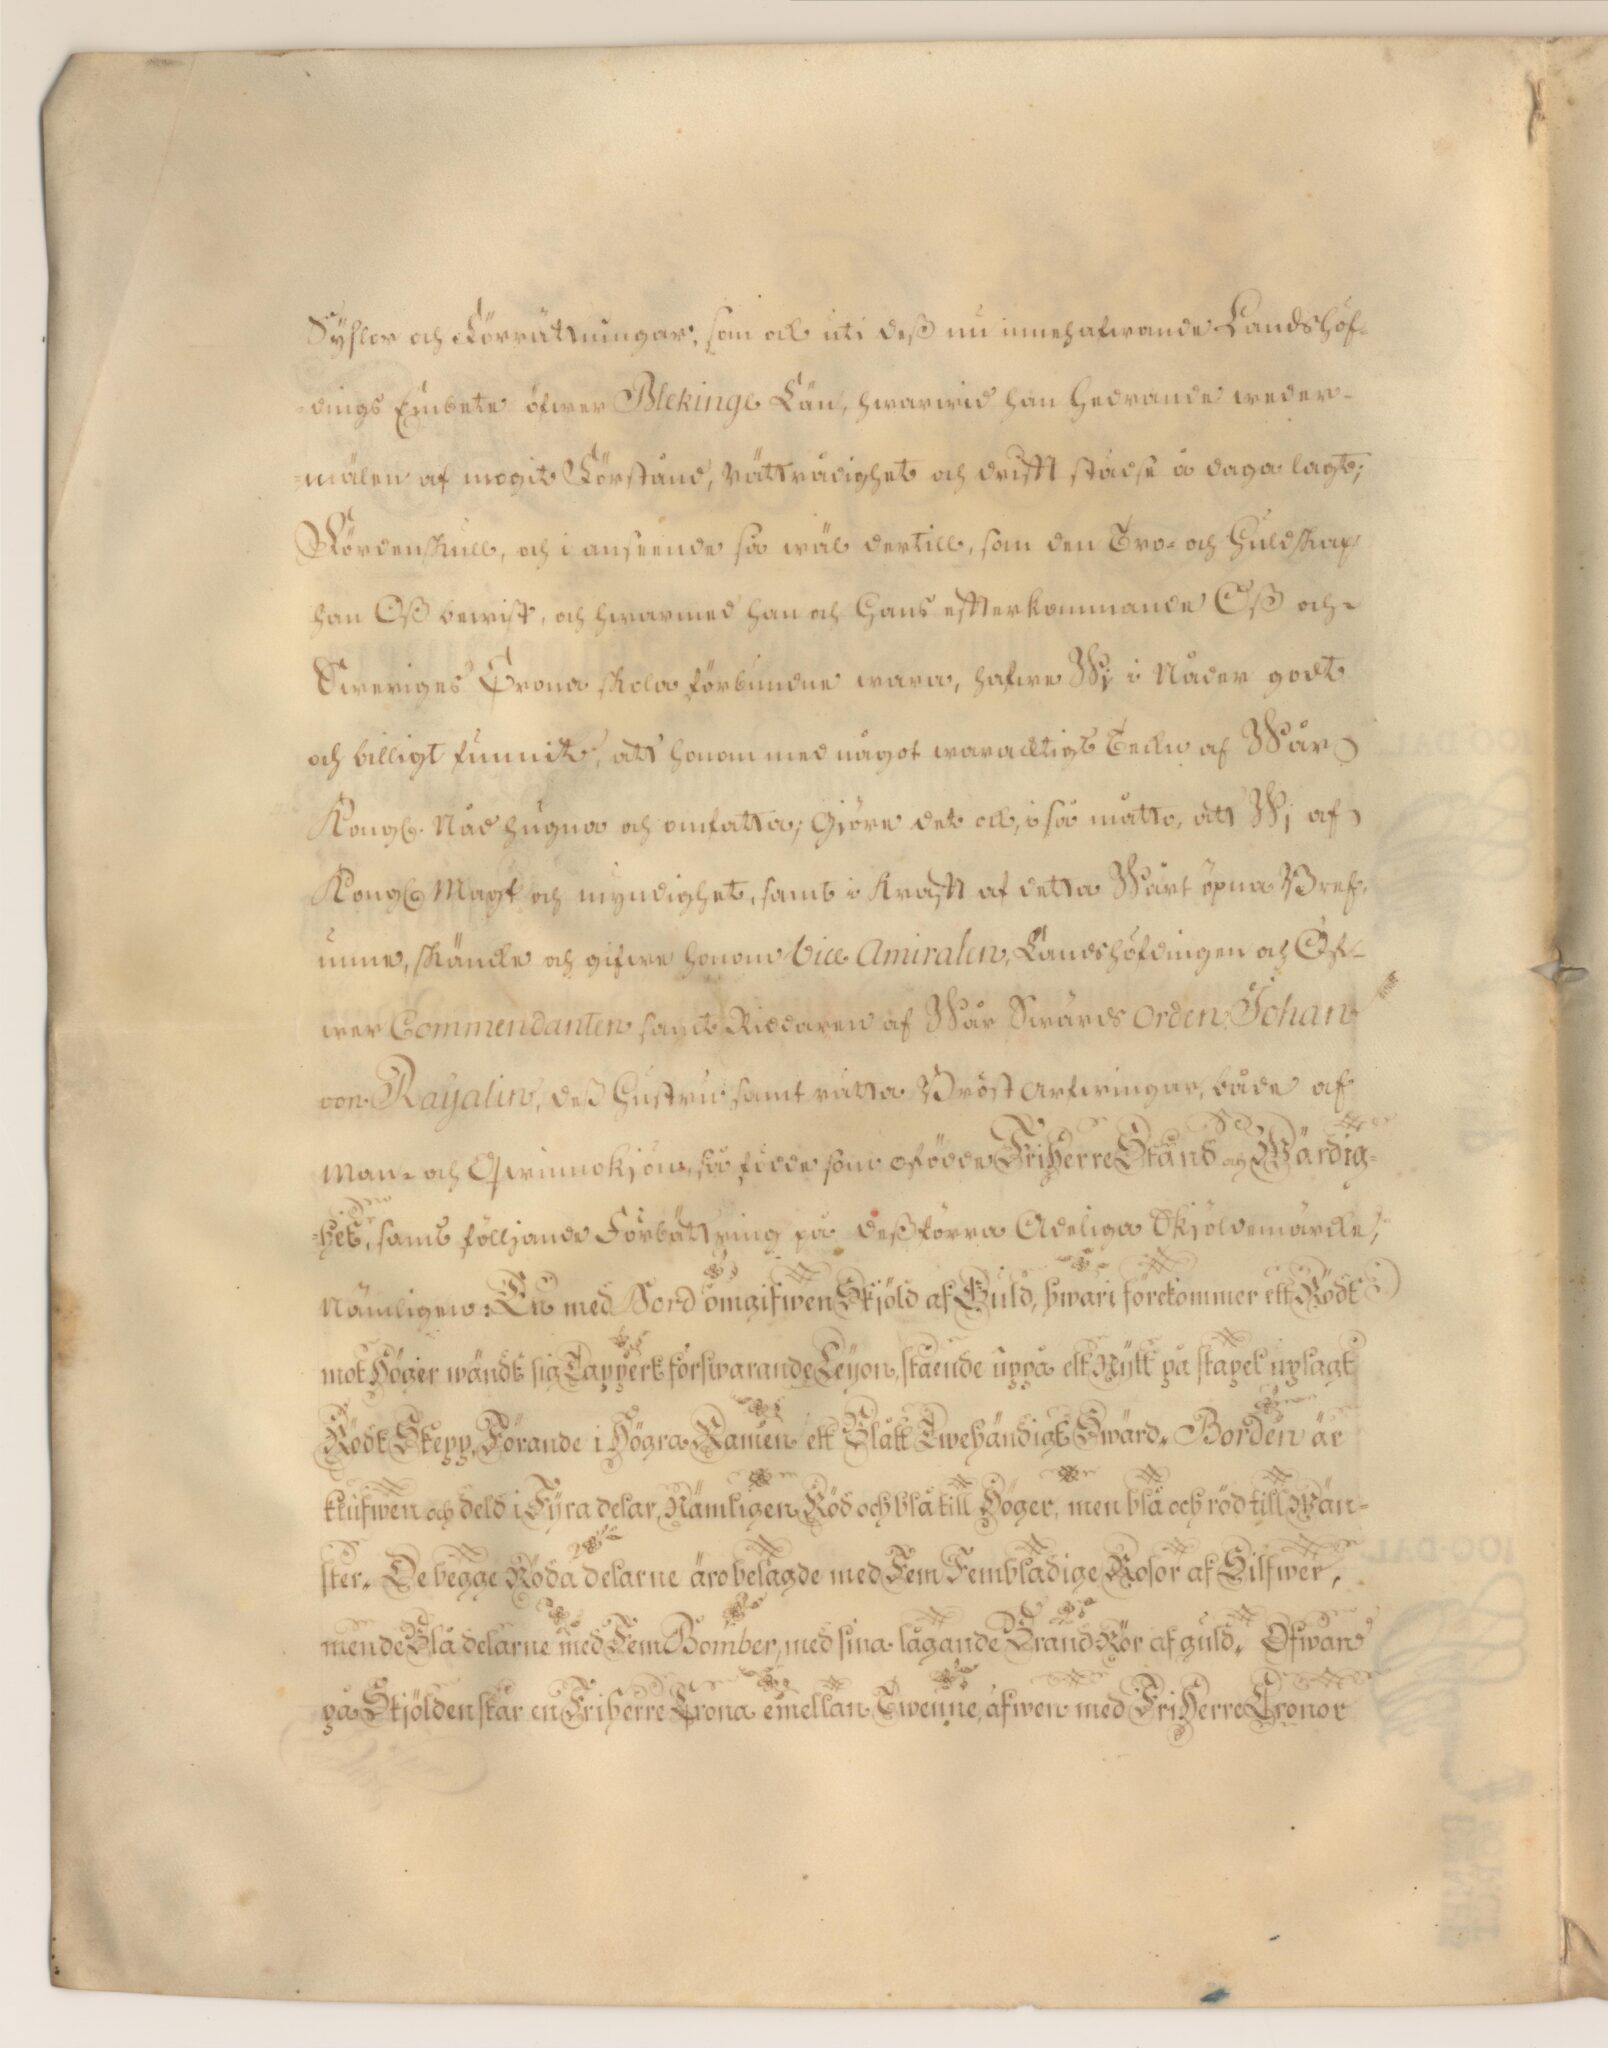 Sysslor och Förrättningar, som ock uti deß nu innehafwande Landshöf-
-dings Embete öfwer Blekinge Län, hwarwid han hedrande weder-
-mälen af mogit Förstånd, rättrådighet och drifft städse å daga lagt;
Fördenskull, och i anseende så wäl dertill, som den Tro- och Huldskap
han Oß bewist, och hwarmed han och Hans efterkommande Oß och
Sweriges Crona skola förbundne wara, hafwe Wj i Nåder godt
och billigt funnit, att honom med något waracktigt Teckn af Wår
Kongl. Nåd hugna och omfatta; Giöre det ock, i så måtto, att Wj af
Kongl. Magt och myndighet, samt i Krafft af detta Wårt öpna Bref,
unne, skäncke och gifwe honom Vice Amiralen, Landshöfdingen och Öf-
wer Commendanten samt Riddaren af Wår Swärds Orden, Johan
von Rayalin, deß Hustru samt rätta Bröst arfwingar, både af
Man- och Qwinnokjön, så födde som ofödde FriHerre Stånd och Wärdig-
-het, samt följande Förbättring på deß förra Adeliga Skjöldemärcke,
Nämligen: En med Bord omgifwen Skjöld af Guld, hwari förekommer ett Rödt
mot Höger wändt sig Tappert förswarande Leyon, stående uppå ett Nytt på stapel uplagt
Rödt Skepp, Förande i Högra Ramen ett Blått Twehändigt Swärd. Borden är
klufwen och deld i Fyra delar, Nämligen Röd och blå till Höger, men blå och röd till Wän-
ster. De begge Röda delarne äro belagde med Fem Fembladige Rosor af Silfwer,
men de Blå delarne med Fem Bomber, med sina lågande Brand Rör af guld. Ofwan
på Skjölden står en Friherre Crona emellan Twenne, äfwen med FriHerre Cronor